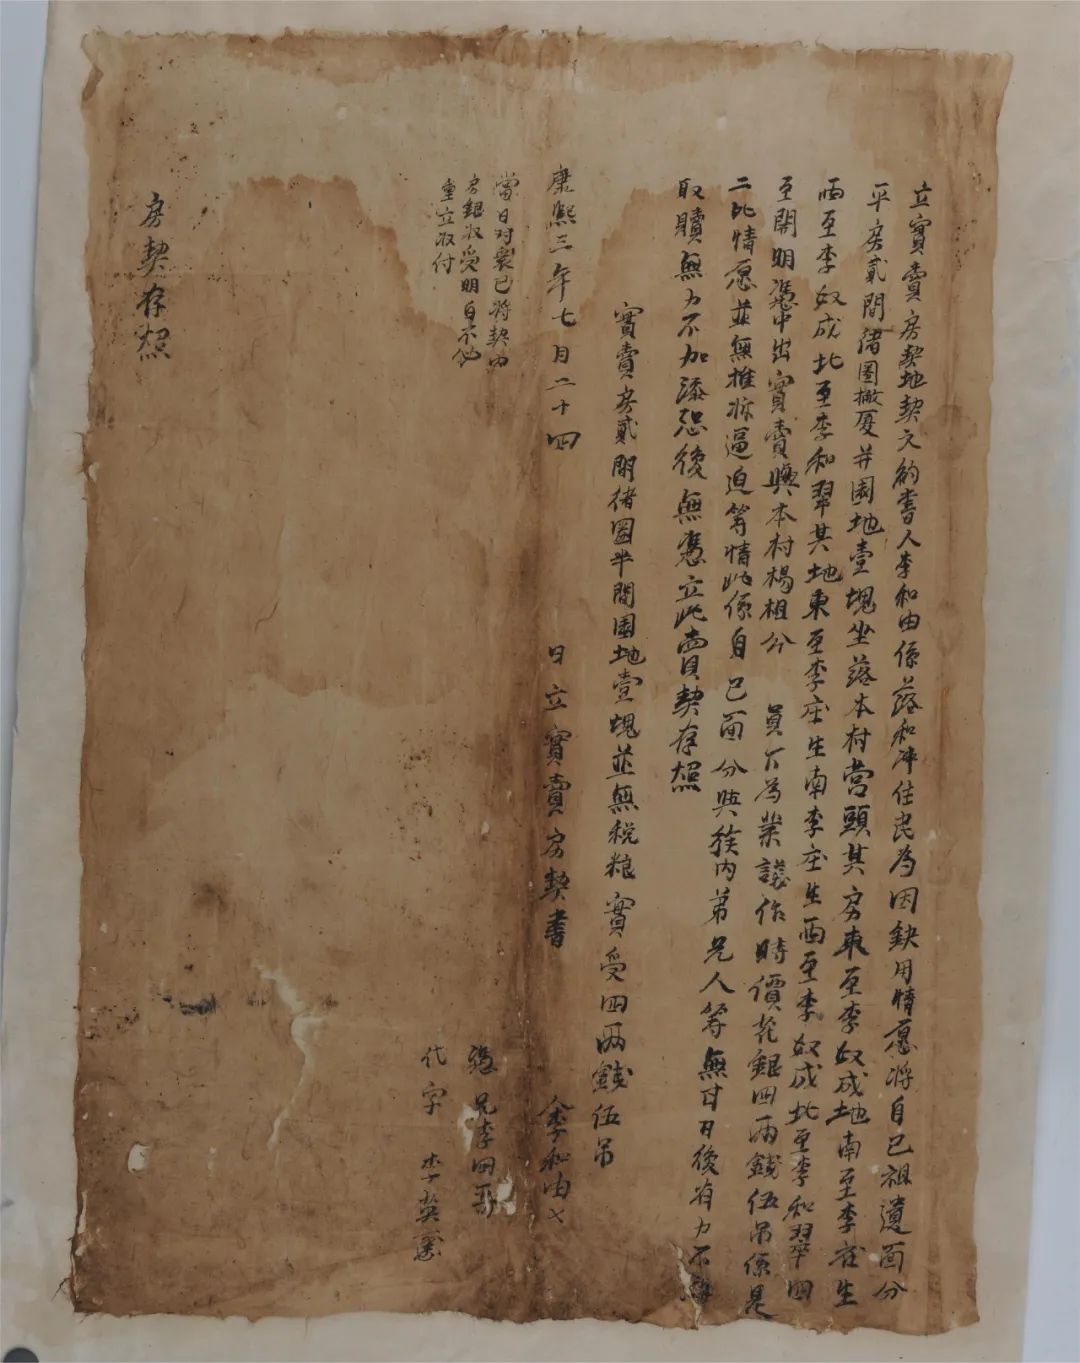 立實賣房契地契文約書人李和由係落和冲住民為因缺用情愿将自己祖遺面分
平房貳間猪圈撇厦并園地壹塊坐落本村营頭其房東至李奴成地南至李在生
西至李奴成北至李和翠其地東至李在生南李在生西至李奴成北至李和翠四
至開明憑中出實賣與本村楊祖分 員下為業議作時價花銀四两錢伍吊係是
二比情愿並無推㧕逼迫等情此係自己面分與族内弟兄人等無干日後有力不
取贖無力不加添恐後無憑立此賣契存照
實賣房貳間猪圈半間園地壹塊並無税粮實受四两錢伍吊
康熙三年七月二十四 日立實賣房契書 李和由
當日对衆已将契内
房銀收受明白不
重立收付
憑 兄李
代字 李英
房契存照